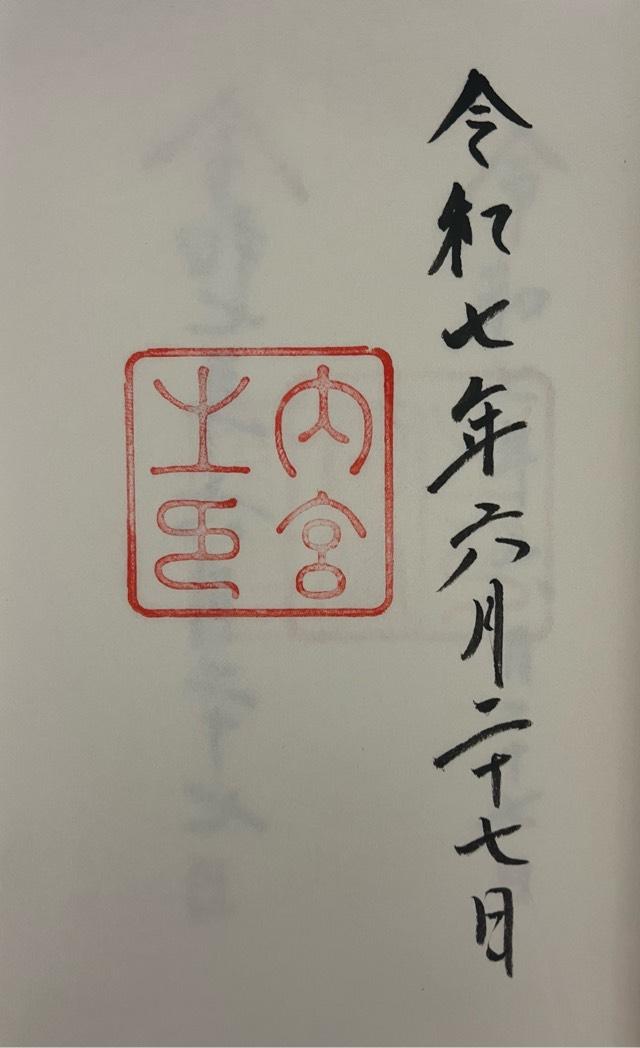 令和七年六月二十七日
内宮
之印